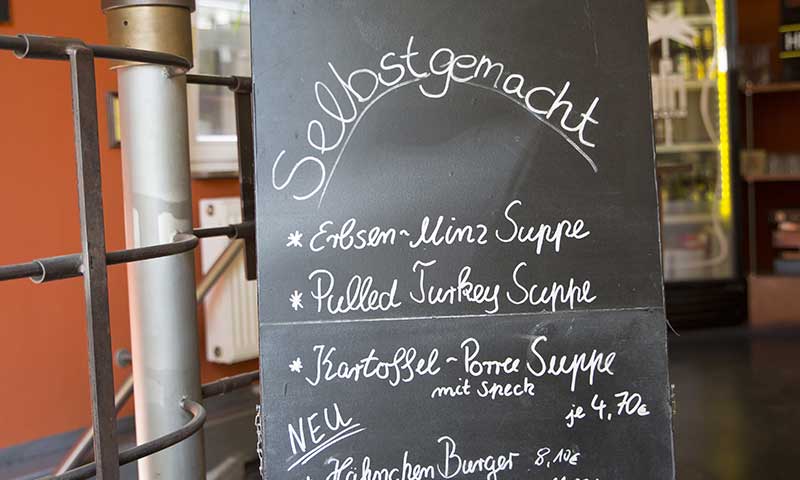 Selbstgemacht
* Erbsen-Minz Suppe
* Pulled Turkey Suppe
* Kartoffel-Porree Suppe
mit Speck
je 4,70€
NEU
Hähnchen Burger 8,10€